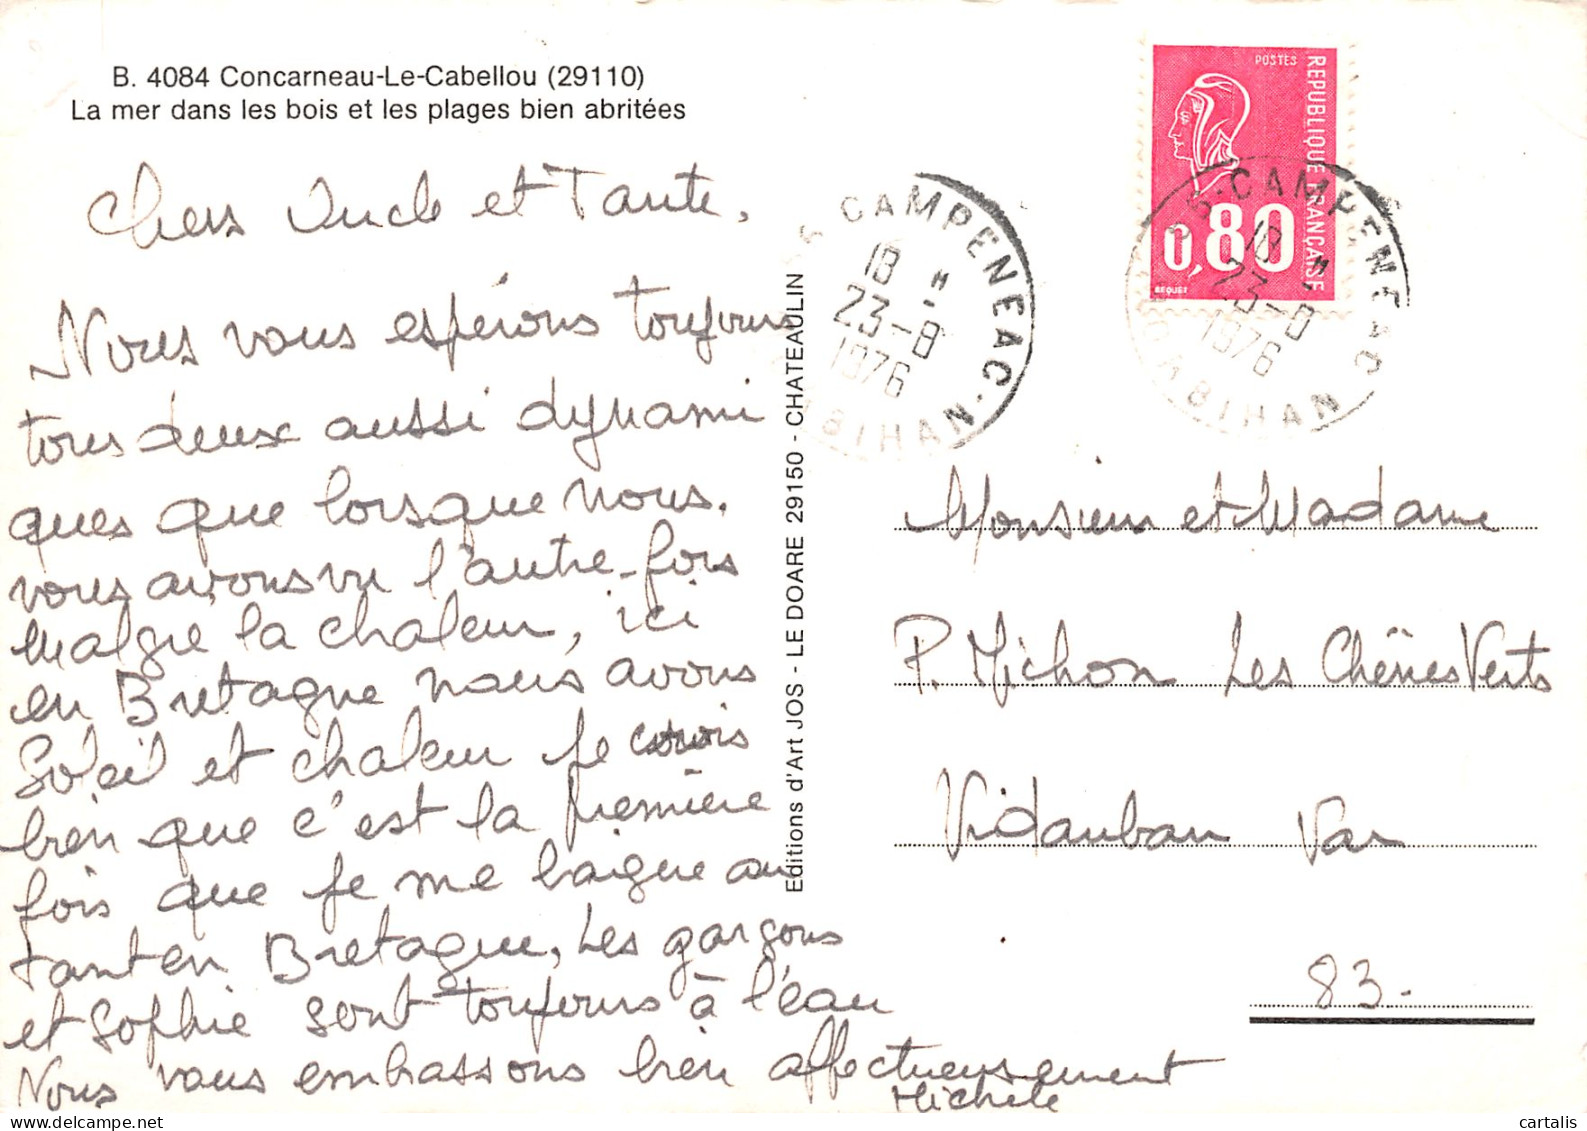 B. 4084 Concarneau-Le-Cabellou (29110)
La mer dans les bois et les plages bien abritées
Chers Oncle et Tante,
Nous vous espérons toujours
tous deux aussi dynami
ques que lorsque nous.
vous avons vu l'autre-fois
Malgré la chaleur, ici
en Bretagne nous avons
Soleil et chaleur je crois
bien que c'est la première
fois que je me baigne au
tant en Bretagne, Les garçons
et Sophie sont toujours à l'eau
Nous vous embrassons bien affectueusement
Michèle
Editions d'Art JOS - LE DOARE 29150 - CHATEAULIN
56 CAMPENEAC
18 H
23-8
1976
MORBIHAN
POSTES
REPUBLIQUE FRANÇAISE
0,80
BEQUET
56 - CAMPENEAC
18 H
23-8
1976
MORBIHAN
Monsieur et Madame
P. Michon Les Chênes Verts
Vidauban Var
83.
cartalis